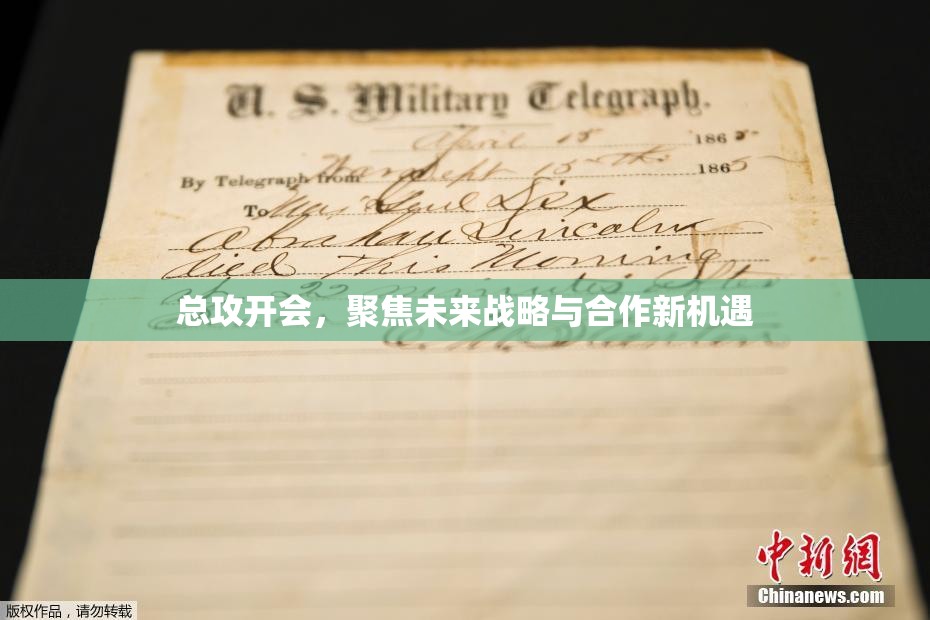 U. S. Military Telegraph.
April 15 1865
By Telegraph from War Dept 15th 1865
To Maj Genl Dix
Abraham Lincoln
died This Morning
at 22 minutes after
总攻开会，聚焦未来战略与合作新机遇
E. M. Stanton
中新网
Chinanews.com
版权作品，请勿转载